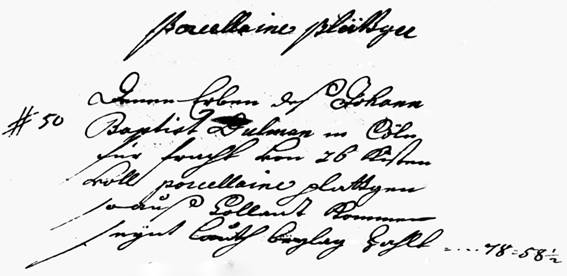 Porcellaine Plättger
Denen Erben des Johann
# 50 Baptist Dulman in Cöln
für fracht von 26 Kisten
voll porcellaine plattgen
so aus Hollant Kommen
seynt lauth beylag Zahlt .... 78=58½